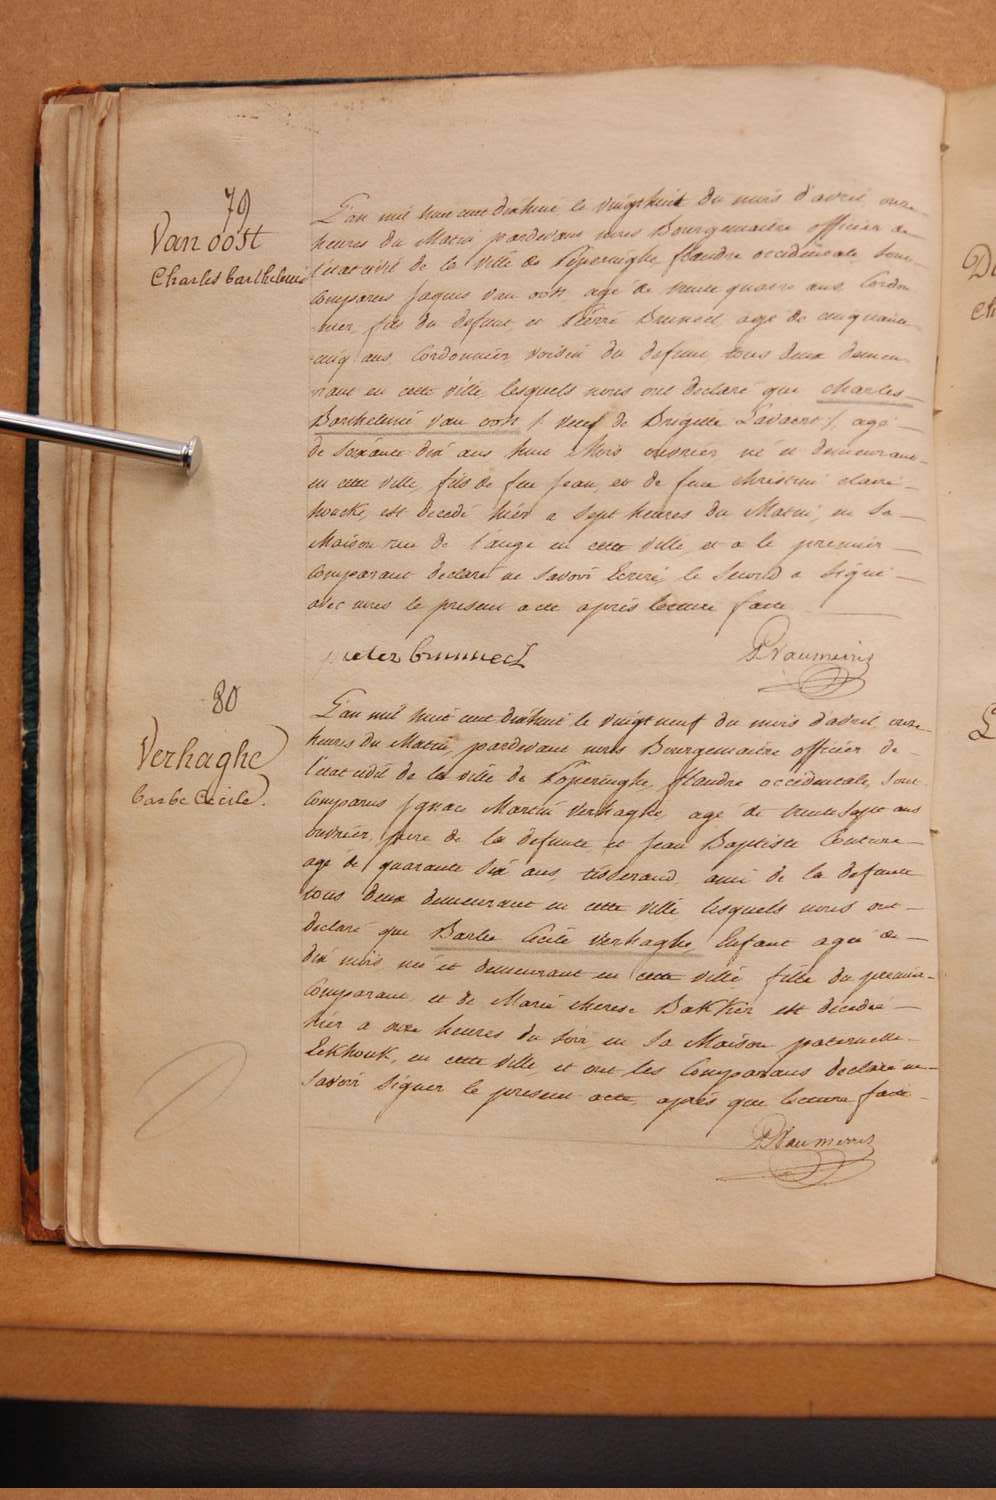 79
Van oost
Charles barthelemi
L'an mil huit cent dixhuit le vingt huit du mois d'avril, onze
heures du Matin pardevant nous Bourgemaitre officier de
l'état civil de la ville de Poperinghe, flandre occidentale, sont
comparus Jaques van oost, agé de trente quatre ans, Cordon
nier, fils du defunt, et Pierre Bruneel, agé de cinquante
cinq ans Cordonnier, voisin du defunt, tous deux demeu
rant en cette ville, lesquels nous ont declaré que Charles
Barthelemi van oost /. veuf de Brigitte Lavaert ./. agé
de soixante dix ans huit Mois ouvrier, né et demeurant
en cette ville, fils de feu Jean, et de feue christine claire
houcke, est decedé hier a sept heures du Matin, en sa
Maison rue de l'ange en cette ville, et a le premier
Comparant declaré ne savoir Ecrire, le second a signé
avec nous le present acte après lecture faite
pieter brunneel
80
Verhaghe
barbe Cecile.
L'an mil huit cent dixhuit le vingt neuf du mois d'avril, onze
heures du Matin, pardevant nous Bourgemaitre officier de
l'état civil de la ville de Poperinghe, flandre occidentale, sont
comparus Ignace Martin Verhaghe, agé de trente sept ans
ouvrier, père de la defunte et Jean Baptiste Couture
agé de quarante dix ans, tisserand, ami de la defunte
tous deux demeurant en cette ville lesquels nous ont
declaré que Barbe Cecile Verhaghe, Enfant agée de
dix mois, née et demeurant en cette ville, fille du premier
Comparant, et de Marie therese Bakker est decedée
hier a onze heures du soir, en sa Maison paternelle
Eekhouk, en cette ville, et ont les Comparans declaré ne
savoir signer le present acte, après que lecture faite